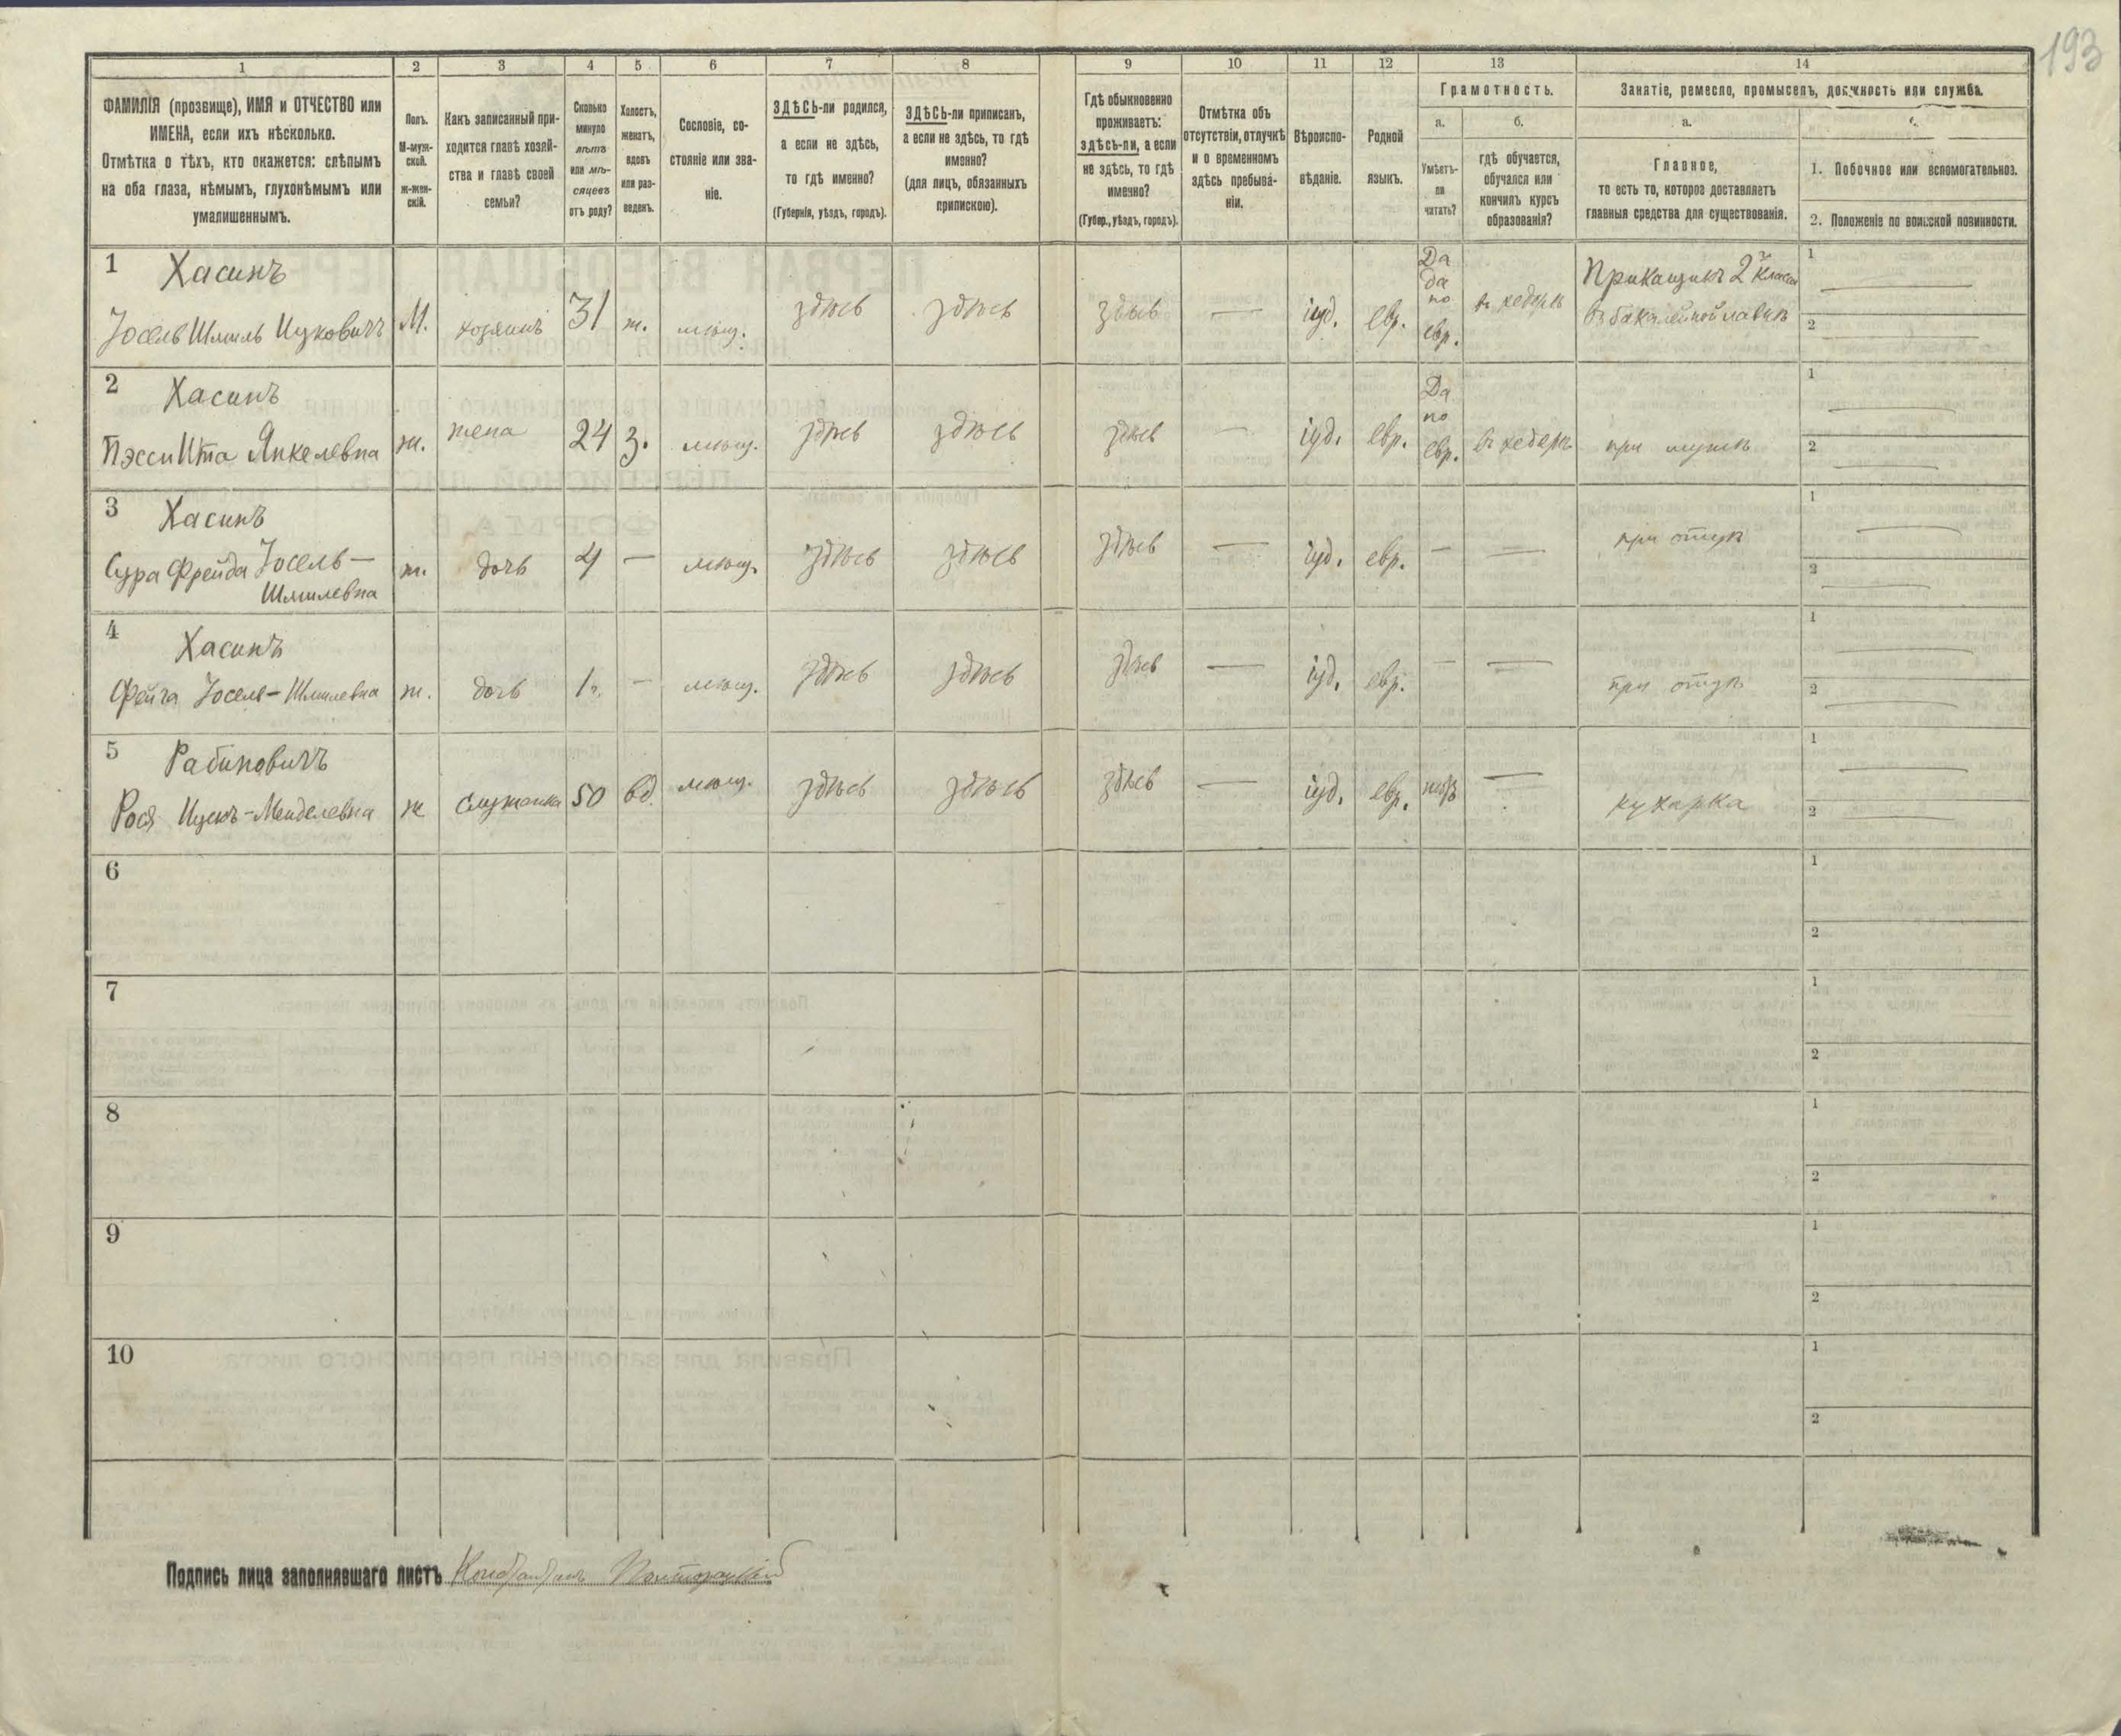 193
1 2 3 4 5 6 7 8 9 10 11 12 13 14
ФАМИЛІЯ (прозвище), ИМЯ и ОТЧЕСТВО или
ИМЕНА, если ихъ нѣсколько.
Отмѣтка о тѣхъ, кто окажется: слѣпымъ
на оба глаза, нѣмымъ, глухонѣмымъ или
умалишеннымъ.
Полъ.
М-муж-
ской.
ж-жен-
скій.
Какъ записанный при-
ходится главѣ хозяй-
ства и главѣ своей
семьи?
Сколько
минуло
лѣтъ
или мѣ-
сяцевъ
отъ роду?
Холостъ,
женатъ,
вдовъ
или раз-
веденъ.
Сословіе, со-
стояніе или зва-
ніе.
ЗДѢСЬ-ли родился,
а если не здѣсь,
то гдѣ именно?
(Губернія, уѣздъ, городъ).
ЗДѢСЬ-ли приписанъ,
а если не здѣсь, то гдѣ
именно?
(для лицъ, обязанныхъ
припискою).
Гдѣ обыкновенно
проживаетъ:
здѣсь-ли, а если
не здѣсь, то гдѣ
именно?
(Губер., уѣздъ, городъ).
Отмѣтка объ
отсутствіи, отлучкѣ
и о временномъ
здѣсь пребыва-
ніи.
Вѣроиспо-
вѣданіе.
Родной
языкъ.
Грамотность.
а.
Умѣетъ-
ли
читать?
б.
гдѣ обучается,
обучался или
кончилъ курсъ
образованія?
Занятіе, ремесло, промыселъ, должность или служба.
а.
Главное,
то есть то, которое доставляетъ
главныя средства для существованія.
1. Побочное или вспомогательное.
2. Положеніе по воинской повинности.
1 Хасинъ
Іосель Шмиль Ицковичъ М. хозяинъ 31 ж. мѣщ. здѣсь здѣсь здѣсь — іуд. евр.
Да
да
по
евр.
въ хедерѣ
Прикащикъ 2й класса
въ бакалейной лавкѣ
1 —
2 —
2 Хасинъ
Пэсси Ита Янкелевна ж. жена 24 з. мѣщ. здѣсь здѣсь здѣсь — іуд. евр.
Да
по
евр.
въ хедерѣ
при мужѣ
1 —
2 —
3 Хасинъ
Сура Фрейда Іосель—
Шмилевна
ж. дочь 4 — мѣщ. здѣсь здѣсь здѣсь — іуд. евр. — — при отцѣ
1 —
2 —
4 Хасинъ
Фейга Іосель-Шмилевна ж. дочь 1г. — мѣщ. здѣсь здѣсь здѣсь — іуд. евр. — — при отцѣ
1 —
2 —
5 Рабиновичъ
Рося Ицекъ-Менделевна ж служанка 50 вд. мѣщ. здѣсь здѣсь здѣсь — іуд. евр. нѣтъ — кухарка
1 —
2 —
6
1
2
7
1
2
8
1
2
9
1
2
10
1
2
Подпись лица заполнявшаго листъ